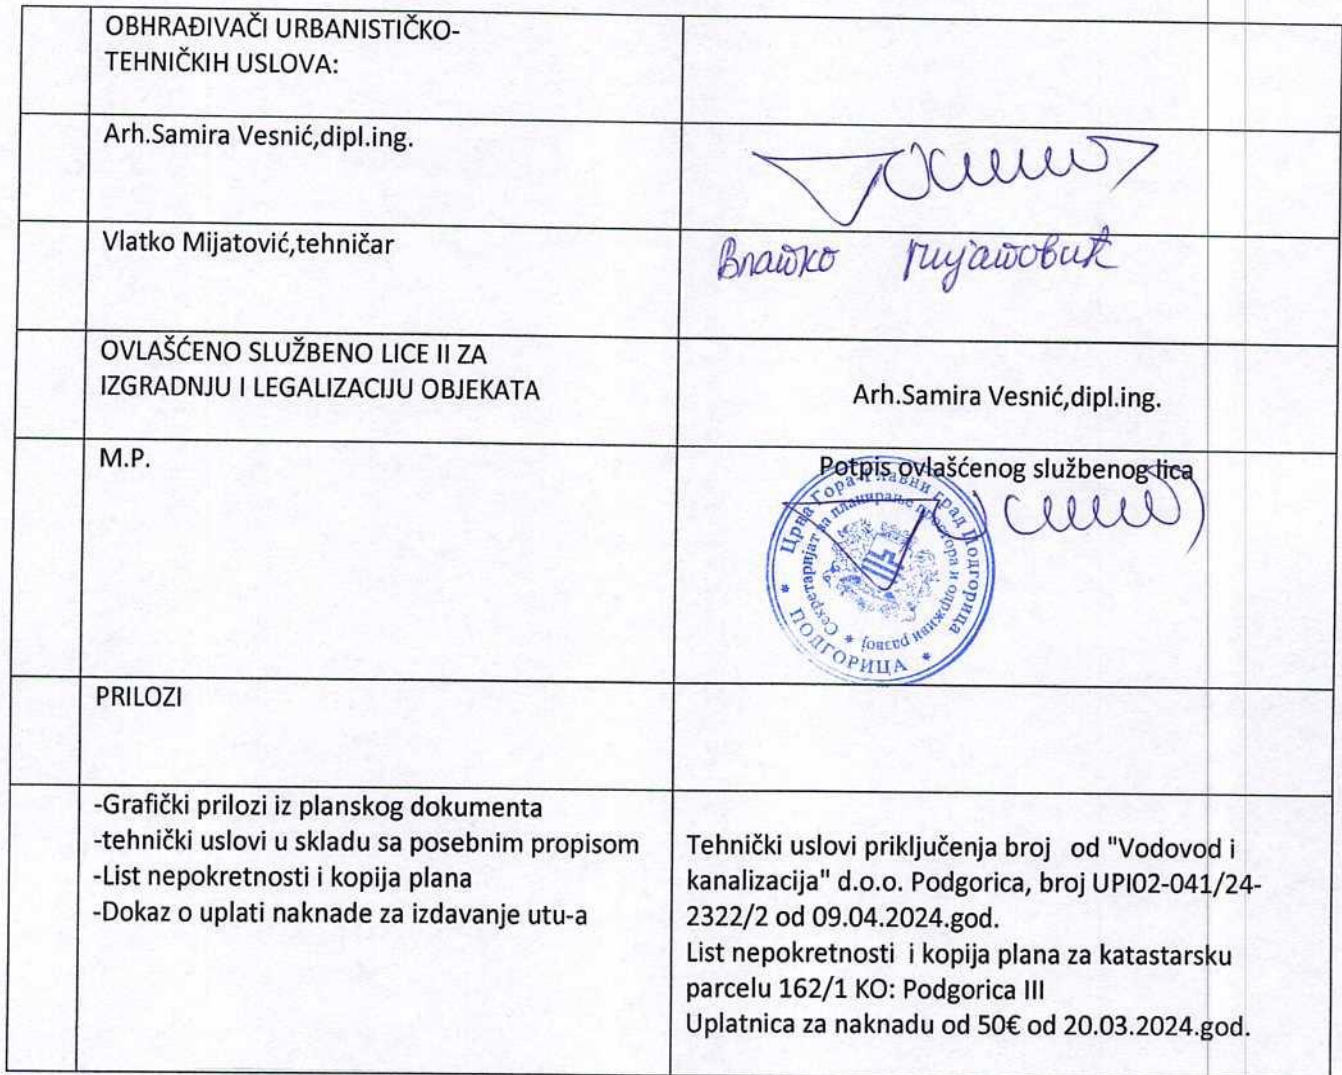 OBHRAĐIVAČI URBANISTIČKO-
TEHNIČKIH USLOVA:
Arh.Samira Vesnić,dipl.ing.
Vlatko Mijatović,tehničar
Влатко Мијатовић
OVLAŠĆENO SLUŽBENO LICE II ZA
IZGRADNJU I LEGALIZACIJU OBJEKATA
Arh.Samira Vesnić,dipl.ing.
M.P.
Potpis ovlašćenog službenog lica
Црна Гора-Главни град Подгорица
Секретаријат за планирање простора и одрживи развој
* ПОДГОРИЦА *
PRILOZI
-Grafički prilozi iz planskog dokumenta
-tehnički uslovi u skladu sa posebnim propisom
-List nepokretnosti i kopija plana
-Dokaz o uplati naknade za izdavanje utu-a
Tehnički uslovi priključenja broj   od "Vodovod i
kanalizacija" d.o.o. Podgorica, broj UPI02-041/24-
2322/2 od 09.04.2024.god.
List nepokretnosti  i kopija plana za katastarsku
parcelu 162/1 KO: Podgorica III
Uplatnica za naknadu od 50€ od 20.03.2024.god.